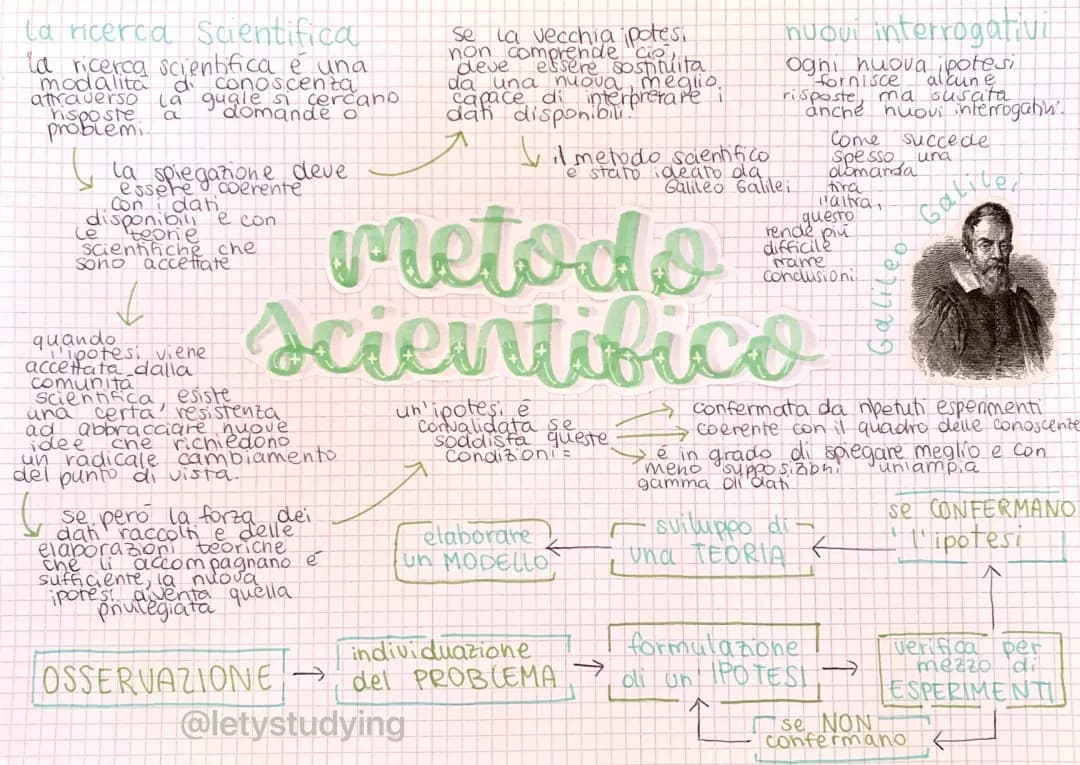 la ricerca scientifica
la ricerca scientifica è una
modalità di conoscenza
attraverso la quale si cercano
risposte a domande o
problemi.
la spiegazione deve
essere coerente
con i dati
disponibili e con
le teorie
scientifiche che
sono accettate
quando
l'ipotesi viene
accettata dalla
comunità
scientifica esiste
una certa resistenza
ad abbracciare nuove
idee che richiedono
un radicale cambiamento
del punto di vista.
se però la forza dei
dati raccolti e delle
elaborazioni teoriche
che li accompagnano è
sufficiente, la nuova
ipotesi diventa quella
privilegiata
se la vecchia ipotesi
non comprende ciò,
deve essere sostituita
da una nuova meglio
capace di interpretare i
dati disponibili.
il metodo scientifico
è stato ideato da
Galileo Galilei
nuovi interrogativi
ogni nuova ipotesi
fornisce alcune
risposte, ma suscita
anche nuovi interrogativi.
Come succede
spesso, una
domanda
tira
l'altra,
questo
rende più
difficile
trarre
conclusioni.
Galileo Galilei
metodo
scientifico
un'ipotesi è
convalidata se
soddisfa queste
condizioni =
confermata da ripetuti esperimenti
coerente con il quadro delle conoscenze
è in grado di spiegare meglio e con
meno supposizioni un'ampia
gamma di dati
OSSERVAZIONE
individuazione
del PROBLEMA
formulazione
di un'IPOTESI
verifica per
mezzo di
ESPERIMENTI
se NON
confermano
se CONFERMANO
l'ipotesi
sviluppo di
una TEORIA
elaborare
un MODELLO
@letystudying